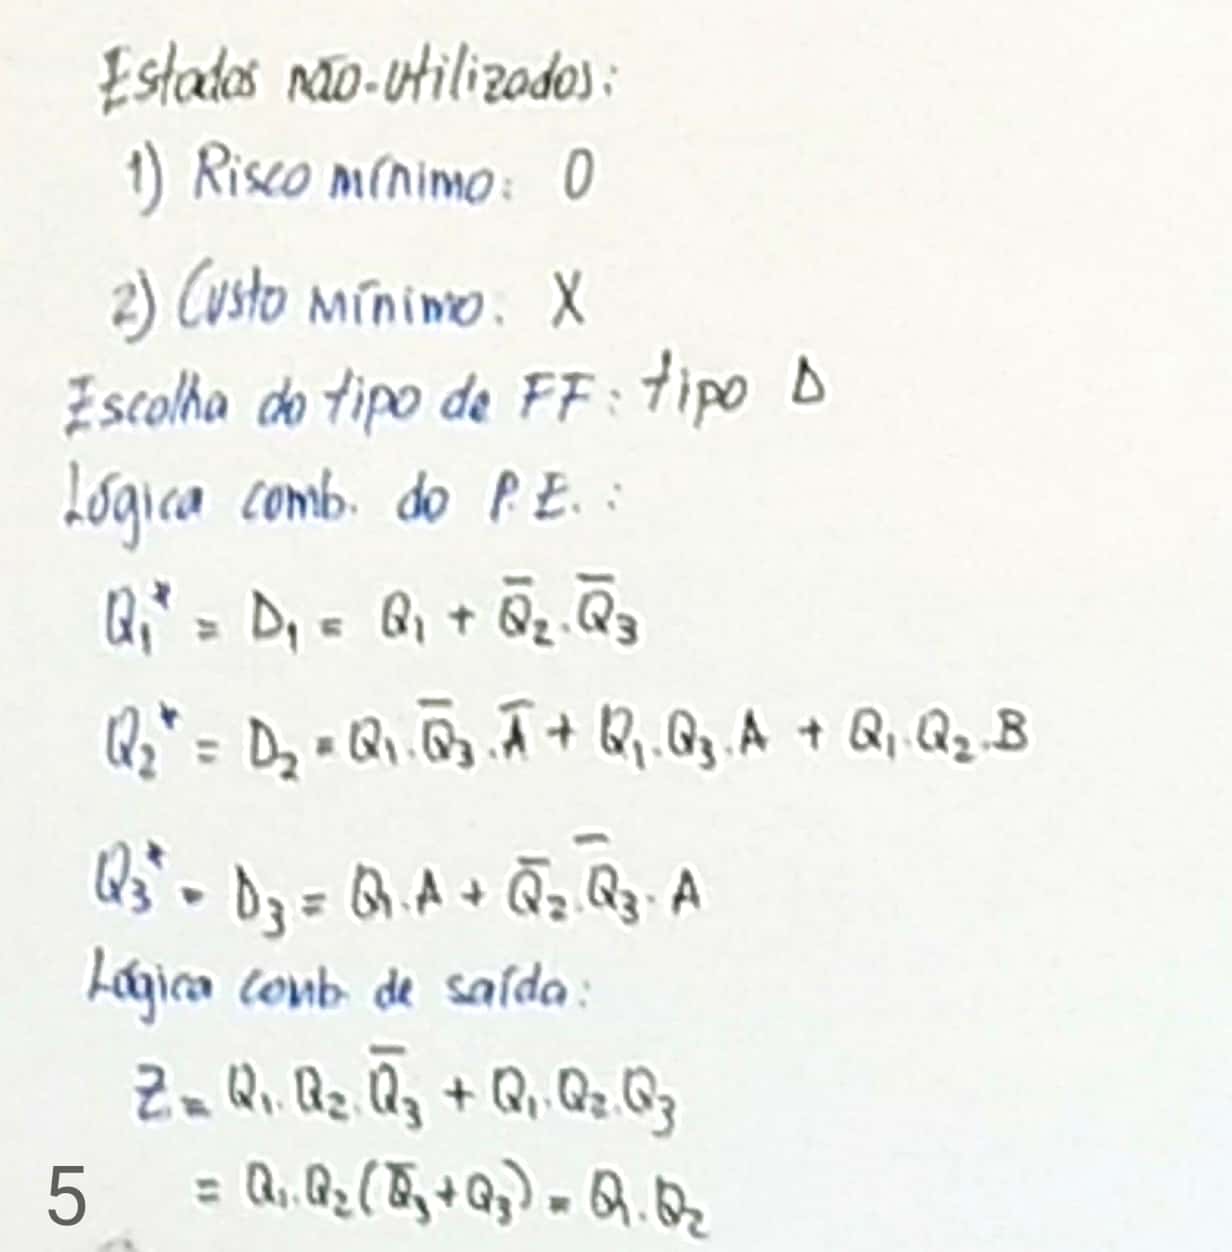 Estados não-utilizados:
1) Risco mínimo: 0
2) Custo mínimo: X
Escolha do tipo de FF: tipo D
Lógica comb. do P.E.:
Q₁* = D₁ = Q₁ + Q̅₂.Q̅₃
Q₂* = D₂ = Q₁.Q̅₃.A̅ + Q₁.Q₃.A + Q₁.Q₂.B
Q₃* = D₃ = Q₁.A + Q̅₂.Q̅₃.A
Lógica comb de saída:
Z = Q₁.Q₂.Q̅₃ + Q₁.Q₂.Q₃
= Q₁.Q₂(Q̅₃+Q₃) = Q₁.Q₂
5